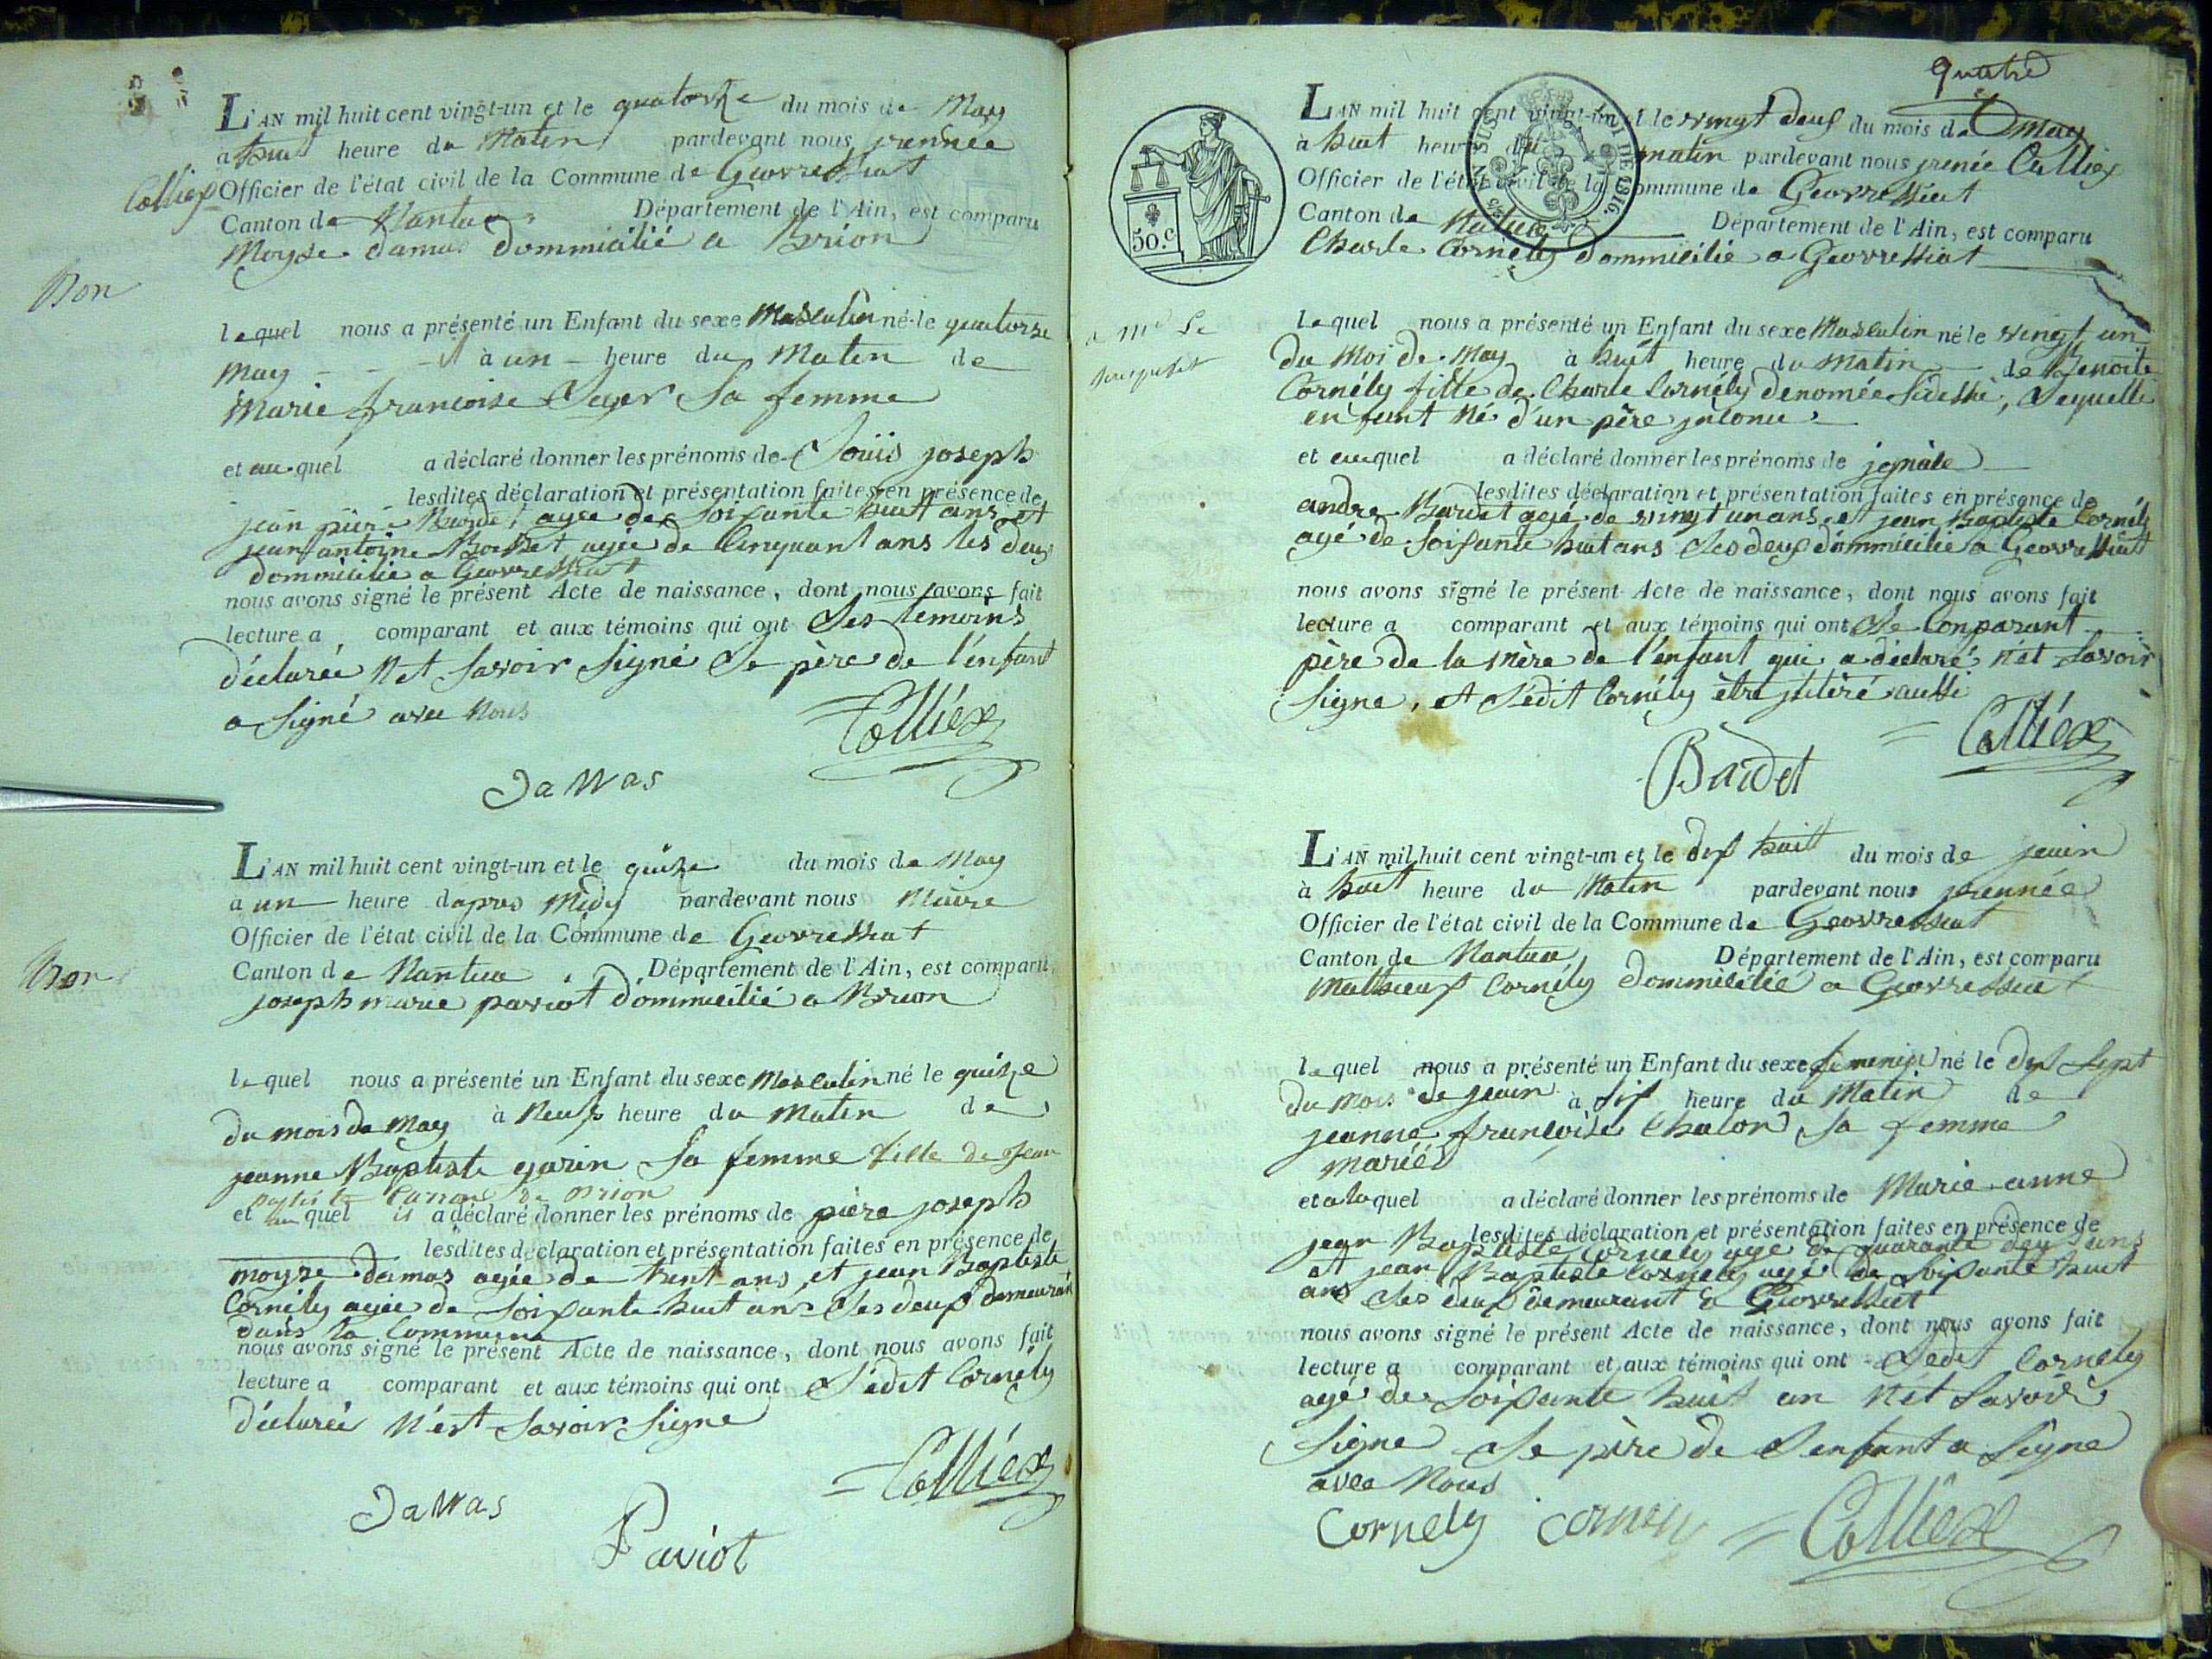 L'AN mil huit cent vingt-un et le quatorze du mois de May
a huit heure du Matin pardevant nous
Colliex Officier de l'état civil de la Commune de Geovressiat
Canton de Nantua Département de l'Ain, est comparu
Moyse damas dommicilié a Brion
Bon
lequel nous a présenté un Enfant du sexe Masculin né le quatorze
May à un heure du Matin de
Marie françoise Seyer sa femme
et au quel a déclaré donner les prénoms de Loüis joseph
lesdites déclaration et présentation faites en présence de
jean piére agee de soixante huit ans et
jean antoine agée de Cinquant ans les deux
dommicilié a Geovressiat
nous avons signé le présent Acte de naissance, dont nous avons fait
lecture a comparant et aux témoins qui ont Les temoins
déclarée Net savoir signé Le père de l'enfant
a signé avec Nous
Colliex
Damas
L'AN mil huit cent vingt-un et le quize du mois de May
a un heure d'apres Midy pardevant nous Maire
Officier de l'état civil de la Commune de Geovressiat
Canton de Nantua Département de l'Ain, est comparu
joseph marie paviot dommicilié a Brion
Bon
lequel nous a présenté un Enfant du sexe Masculin né le quize
du mois de May à Neuf heure du Matin de
jeanne Baptiste garin sa femme fille de Jean
de Brion
et au quel il a déclaré donner les prénoms de piére joseph
lesdites déclaration et présentation faites en présence de
moyse damas agée de trent ans et jean Baptiste
Cornély agée de soixante huit ans Les deux demeurant
dans la Commune
nous avons signé le présent Acte de naissance, dont nous avons fait
lecture a comparant et aux témoins qui ont Lédit Cornély
déclarée N'est savoir signe
Colliex
Damas
Paviot
quatre
L'AN mil huit cent vingt-un et le vingt deux du mois de May
à huit heure du matin pardevant nous Colliex
Officier de l'état civil de la Commune de Geovressiat
Canton de Natua Département de l'Ain, est comparu
Charle Cornély dommicilié a Geovressiat
50.c
lequel nous a présenté un Enfant du sexe Masculin né le vingt un
du Moi de May à huit heure du matin de Benoite
Cornély fille de Charle Cornély denomée , Lequelle
enfant Né d'un père
et auquel a déclaré donner les prénoms de
lesdites déclaration et présentation faites en présence de
andre Bardet agé de vingt un ans et jean Baptiste Cornély
agé de soixante huit ans Les deux dommicilie a Geovressiat
nous avons signé le présent Acte de naissance, dont nous avons fait
lecture a comparant et aux témoins qui ont Le Conparant
père de la mère de l'enfant qui a déclaré net savoir
signe, et Lédit Cornély aussi
Colliex
Bardet
L'AN mil huit cent vingt-un et le dix huit du mois de jeuin
à huit heure du Matin pardevant nous
Officier de l'état civil de la Commune de Geovressiat
Canton de Nantua Département de l'Ain, est comparu
Mathieux Cornély dommicilié a Geovressiat
lequel nous a présenté un Enfant du sexe feminin né le dix sept
du mois de jeuin à six heure du Matin de
jeanne françoise Chalon sa femme
mariée
et a laquel a déclaré donner les prénoms de Marie anne
lesdites déclaration et présentation faites en présence de
jean Baptiste Cornely age de quarante deux ans
et jean Baptiste Cornely agé de soixante huit
ans Les deux demeurant a Geovressiat
nous avons signé le présent Acte de naissance, dont nous avons fait
lecture a comparant et aux témoins qui ont Ledit Cornely
agé de soixante huit an Nét savoir
signe Le père de Lenfant a signe
avec Nous
Cornely Colliex